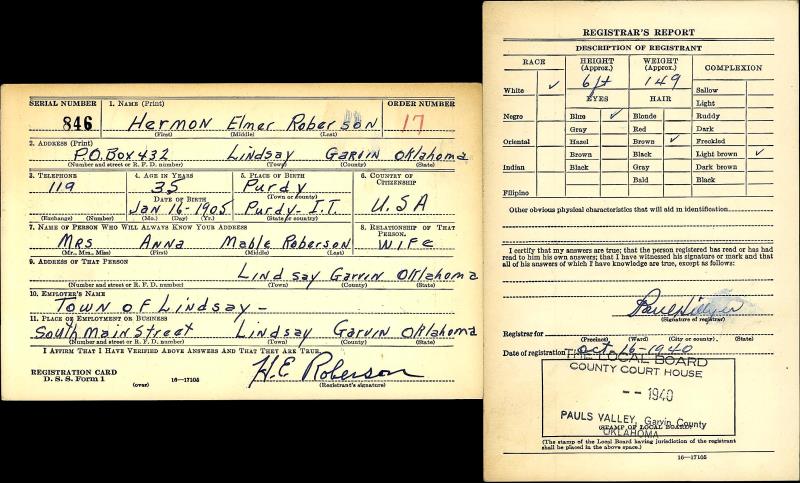 SERIAL NUMBER
1. NAME (Print)
ORDER NUMBER
846
Hermon Elmer Roberson
17
(First) (Middle) (Last)
2. ADDRESS (Print)
P.O. Box 432 Lindsay Garvin Oklahoma
(Number and street or R. F. D. number) (Town) (County) (State)
3. TELEPHONE
4. AGE IN YEARS
5. PLACE OF BIRTH
6. COUNTRY OF CITIZENSHIP
119
35
Purdy
(Town or county)
DATE OF BIRTH
Jan 16-1905
Purdy-I.T.
U.S.A
(Exchange) (Number)
(Mo.) (Day) (Yr.)
(State or country)
7. NAME OF PERSON WHO WILL ALWAYS KNOW YOUR ADDRESS
8. RELATIONSHIP OF THAT PERSON.
Mrs Anna Mable Roberson
Wife
(Mr., Mrs., Miss) (First) (Middle) (Last)
9. ADDRESS OF THAT PERSON
Lindsay Garvin Oklahoma
(Number and street or R. F. D. number) (Town) (County) (State)
10. EMPLOYER'S NAME
Town of Lindsay -
11. PLACE OF EMPLOYMENT OR BUSINESS
South Main Street Lindsay Garvin Oklahoma
(Number and street or R. F. D. number) (Town) (County) (State)
I AFFIRM THAT I HAVE VERIFIED ABOVE ANSWERS AND THAT THEY ARE TRUE.
REGISTRATION CARD
D. S. S. Form 1
(over)
16—17105
H.E Roberson
(Registrant's signature)
REGISTRAR'S REPORT
DESCRIPTION OF REGISTRANT
RACE
HEIGHT (Approx.)
WEIGHT (Approx.)
COMPLEXION
6 ft
149
White ✓
EYES
HAIR
Sallow
Light
Negro
Blue ✓
Blonde
Ruddy
Gray
Red
Dark
Oriental
Hazel
Brown ✓
Freckled
Brown
Black
Light brown ✓
Indian
Black
Gray
Dark brown
Bald
Black
Filipino
Other obvious physical characteristics that will aid in identification
I certify that my answers are true; that the person registered has read or has had
read to him his own answers; that I have witnessed his signature or mark and that
all of his answers of which I have knowledge are true, except as follows:
(Signature of registrar)
Registrar for
(Precinct) (Ward) (City or county) (State)
Date of registration Oct 16-1940
THE LOCAL BOARD
COUNTY COURT HOUSE
-- 1940
PAULS VALLEY, Garvin County
(STAMP OF LOCAL BOARD)
OKLAHOMA
(The stamp of the Local Board having jurisdiction of the registrant
shall be placed in the above space.)
16—17105